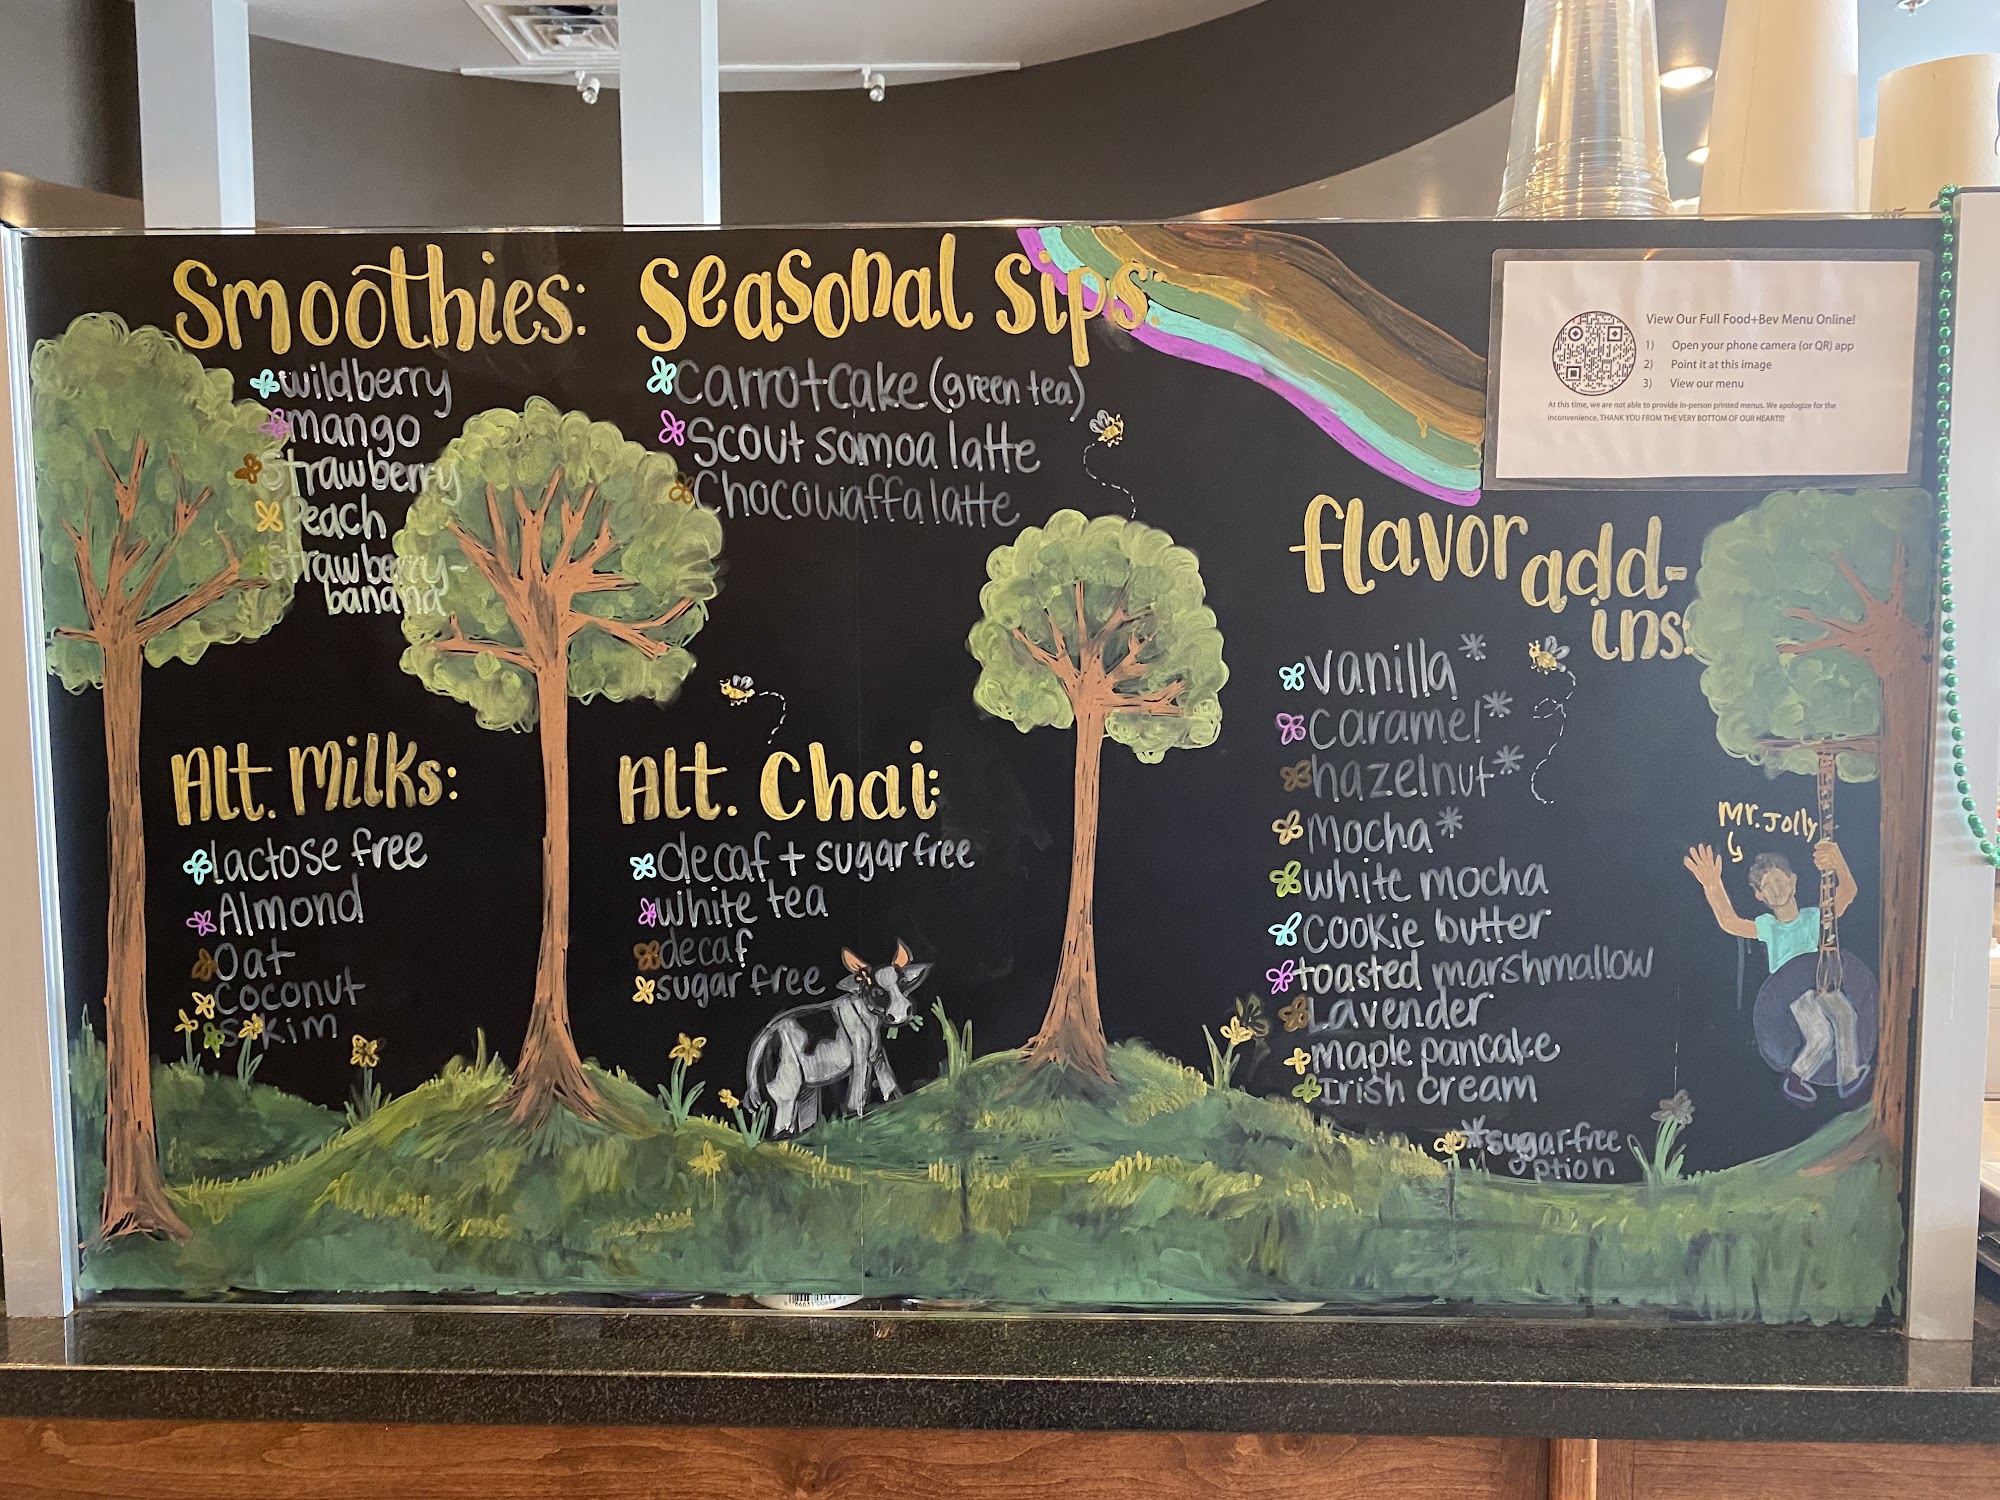 Smoothies:
wildberry
mango
Strawberry
Peach
Strawberry-
banana
Seasonal Sips:
Carrotcake (green tea)
Scout samoa latte
Chocowaffa latte
View Our Full Food+Bev Menu Online!
1) Open your phone camera (or QR) app
2) Point it at this image
3) View our menu
At this time, we are not able to provide in-person printed menus. We apologize for the
inconvenience. THANK YOU FROM THE VERY BOTTOM OF OUR HEART!!!
Alt. Milks:
lactose free
Almond
Oat
Coconut
skim
Alt. Chai:
decaf + sugar free
white tea
decaf
sugar free
flavor add-
ins:
vanilla*
caramel*
hazelnut*
Mocha*
white mocha
cookie butter
toasted marshmallow
Lavender
maple pancake
Irish cream
*sugar-free
option
Mr. Jolly